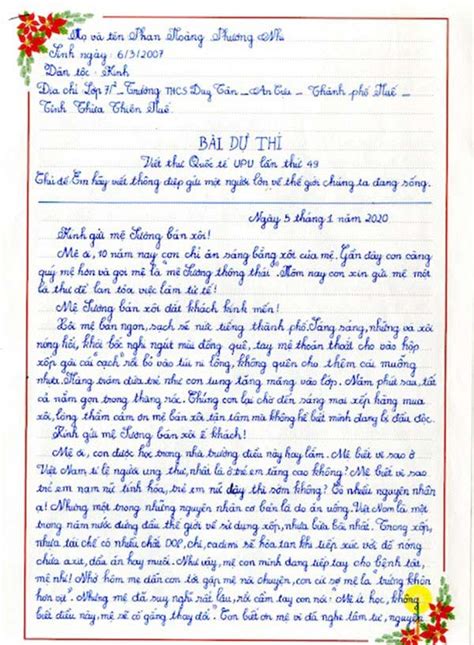 Họ và tên Phan Hoàng Phương Nhi
Sinh ngày: 6/3/2007
Dân tộc: Kinh
Địa chỉ Lớp 7/1 - Trường THCS Duy Tân - An Cựu - Thành phố Huế -
Tỉnh Thừa Thiên Huế.
BÀI DỰ THI
Viết thư Quốc tế UPU lần thứ 49
Chủ đề Em hãy viết thông điệp gửi một người lớn về thế giới chúng ta đang sống.
Ngày 5 tháng 1 năm 2020
Kính gửi mệ Sương bán xôi!
Mệ ơi, 10 năm nay con chỉ ăn sáng bằng xôi của mệ. Gần đây con càng
quý mệ hơn và gọi mệ là "mệ Sương thông thái". Hôm nay con xin gửi mệ một
lá thư để lan tỏa việc làm tử tế!
Mệ Sương bán xôi đắt khách kính mến!
Xôi mệ bán ngon, sạch sẽ nức tiếng thành phố. Sáng sáng, những vá xôi
nóng hổi, khói bốc nghi ngút mùi đồng quê, tay mệ thoăn thoắt cho vào hộp
xốp gói cái "cạch" rồi bỏ vào túi ni lông, không quên cho thêm cái muỗng
nhựa. Hàng trăm đứa trẻ như con tung tăng mang vào lớp. Năm phút sau, tất
cả nằm gọn trong thùng rác. Chúng con lại chờ đến sáng mai xếp hàng mua
xôi, lòng thầm cảm ơn mệ bán xôi tận tâm mà không hề biết mình đang bị đầu độc.
Kính gửi mệ Sương bán xôi ế khách!
Mệ ơi, con được học trong nhà trường điều này hay lắm. Mệ biết vì sao ở
Việt Nam tỉ lệ người ung thư, nhất là ở trẻ em tăng cao không? Mệ biết vì sao
trẻ em nam nữ tính hóa, trẻ em nữ dậy thì sớm không? Có nhiều nguyên nhân
ạ! Nhưng một trong những nguyên nhân cơ bản là do ăn uống. Việt Nam là một
trong năm nước đứng đầu thế giới về sử dụng xốp, nhựa bừa bãi nhất. Trong xốp,
nhựa tái chế có nhiều chất DOP, chì, cadimi sẽ hòa tan khi tiếp xúc với đồ nóng
chứa axit, dầu ăn hay muối. Như vậy, mệ con mình đang tiếp tay cho bệnh tật,
mệ nhỉ! Nhớ hôm mẹ dẫn con tới gặp mệ nói chuyện, con cứ sợ mệ la "trứng khôn
hơn vịt". Nhưng mệ đã suy nghĩ rất lâu, rồi cầm tay con nói: "Mệ ít học, không
biết điều này, mệ sẽ cố gắng thay đổi". Con biết ơn mệ vì đã nghe lắm tư, nguyện